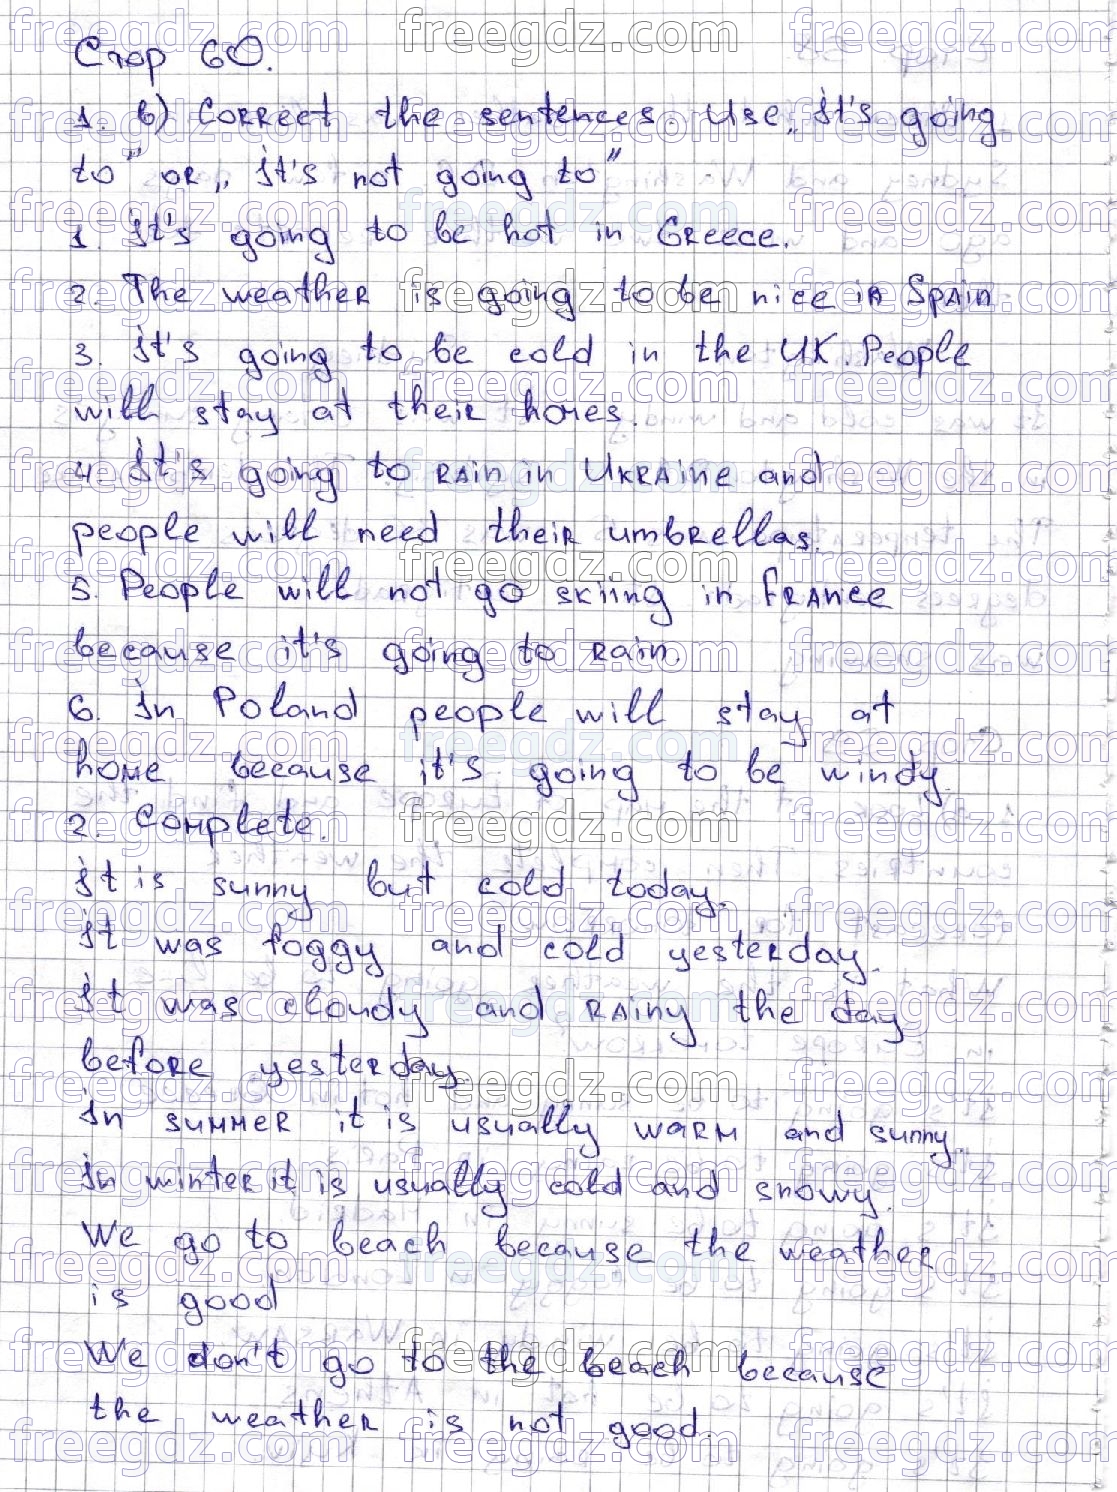 Стор 60.
1. b) Correct the sentences. Use „it's going
to" or „it's not going to"
1. It's going to be hot in Greece.
2. The weather is going to be nice in Spain
3. It's going to be cold in the UK. People
will stay at their homes.
4. It's going to rain in Ukraine and
people will need their umbrellas.
5. People will not go skiing in France
because it's going to rain.
6. In Poland people will stay at
home because it's going to be windy.
2. Complete.
It is sunny but cold today.
It was foggy and cold yesterday.
It was cloudy and rainy the day
before yesterday.
In summer it is usually warm and sunny.
In winter it is usually cold and snowy.
We go to beach because the weather
is good
We don't go to the beach because
the weather is not good.
freegdz.com